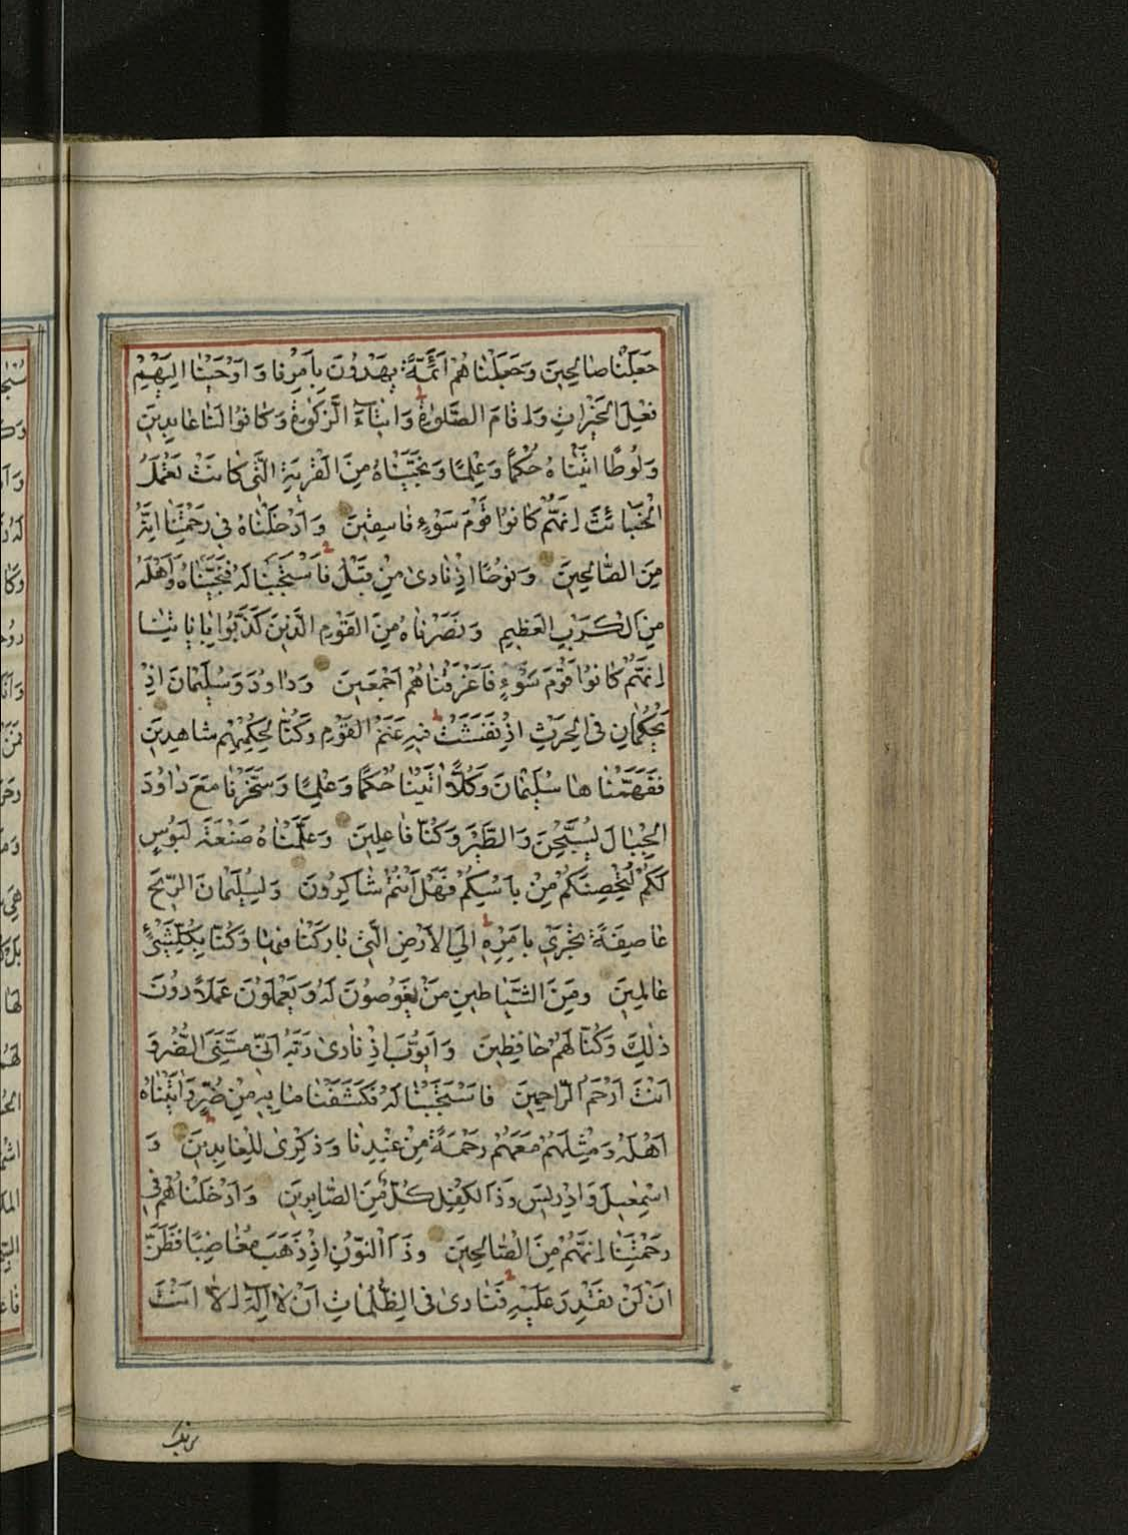 جَعَلْنٰا صٰالِحِينَ وَجَعَلْنٰاهُمْ اَئِمَّةً يَهْدُونَ بِاَمْرِنٰا وَاَوْحَيْنٰا اِلَيْهِمْ
فِعْلَ الْخَيْرٰاتِ وَاِقٰامَ الصَّلٰوةِ وَاِيتٰٓاءَ الزَّكٰوةِ وَكٰانُوا لَنٰا عٰابِدِينَ
وَلُوطًا اٰتَيْنٰاهُ حُكْمًا وَعِلْمًا وَنَجَّيْنٰاهُ مِنَ الْقَرْيَةِ الَّتِى كٰانَتْ تَعْمَلُ
الْخَبٰائِثَ اِنَّهُمْ كٰانُوا قَوْمَ سَوْءٍ فٰاسِقِينَ وَاَدْخَلْنٰاهُ فِى رَحْمَتِنٰا اِنَّهُ
مِنَ الصّٰالِحِينَ وَنُوحًا اِذْ نٰادىٰ مِنْ قَبْلُ فَاسْتَجَبْنٰا لَهُ فَنَجَّيْنٰاهُ وَاَهْلَهُ
مِنَ الْكَرْبِ الْعَظِيمِ وَنَصَرْنٰاهُ مِنَ الْقَوْمِ الَّذِينَ كَذَّبُوا بِاٰيٰاتِنٰا
اِنَّهُمْ كٰانُوا قَوْمَ سَوْءٍ فَاَغْرَقْنٰاهُمْ اَجْمَعِينَ وَدٰاوُدَ وَسُلَيْمٰانَ اِذْ
يَحْكُمٰانِ فِى الْحَرْثِ اِذْ نَفَشَتْ فِيهِ غَنَمُ الْقَوْمِ وَكُنّٰا لِحُكْمِهِمْ شٰاهِدِينَ
فَفَهَّمْنٰاهٰا سُلَيْمٰانَ وَكُلًّا اٰتَيْنٰا حُكْمًا وَعِلْمًا وَسَخَّرْنٰا مَعَ دٰاوُدَ
الْجِبٰالَ يُسَبِّحْنَ وَالطَّيْرَ وَكُنّٰا فٰاعِلِينَ وَعَلَّمْنٰاهُ صَنْعَةَ لَبُوسٍ
لَكُمْ لِتُحْصِنَكُمْ مِنْ بَاْسِكُمْ فَهَلْ اَنْتُمْ شٰاكِرُونَ وَلِسُلَيْمٰانَ الرِّيحَ
عٰاصِفَةً تَجْرِى بِاَمْرِهِ اِلَى الْاَرْضِ الَّتِى بٰارَكْنٰا فِيهٰا وَكُنّٰا بِكُلِّ شَىْءٍ
عٰالِمِينَ وَمِنَ الشَّيٰاطِينِ مَنْ يَغُوصُونَ لَهُ وَيَعْمَلُونَ عَمَلًا دُونَ
ذٰلِكَ وَكُنّٰا لَهُمْ حٰافِظِينَ وَاَيُّوبَ اِذْ نٰادىٰ رَبَّهُ اَنِّى مَسَّنِىَ الضُّرُّ وَ
اَنْتَ اَرْحَمُ الرّٰاحِمِينَ فَاسْتَجَبْنٰا لَهُ فَكَشَفْنٰا مٰا بِهِ مِنْ ضُرٍّ وَاٰتَيْنٰاهُ
اَهْلَهُ وَمِثْلَهُمْ مَعَهُمْ رَحْمَةً مِنْ عِنْدِنٰا وَذِكْرىٰ لِلْعٰابِدِينَ وَ
اِسْمٰعِيلَ وَاِدْرِيسَ وَذَا الْكِفْلِ كُلٌّ مِنَ الصّٰابِرِينَ وَاَدْخَلْنٰاهُمْ فِى
رَحْمَتِنٰا اِنَّهُمْ مِنَ الصّٰالِحِينَ وَذَا النُّونِ اِذْ ذَهَبَ مُغٰاضِبًا فَظَنَّ
اَنْ لَنْ نَقْدِرَ عَلَيْهِ فَنٰادىٰ فِى الظُّلُمٰاتِ اَنْ لٰا اِلٰهَ اِلّٰا اَنْتَ